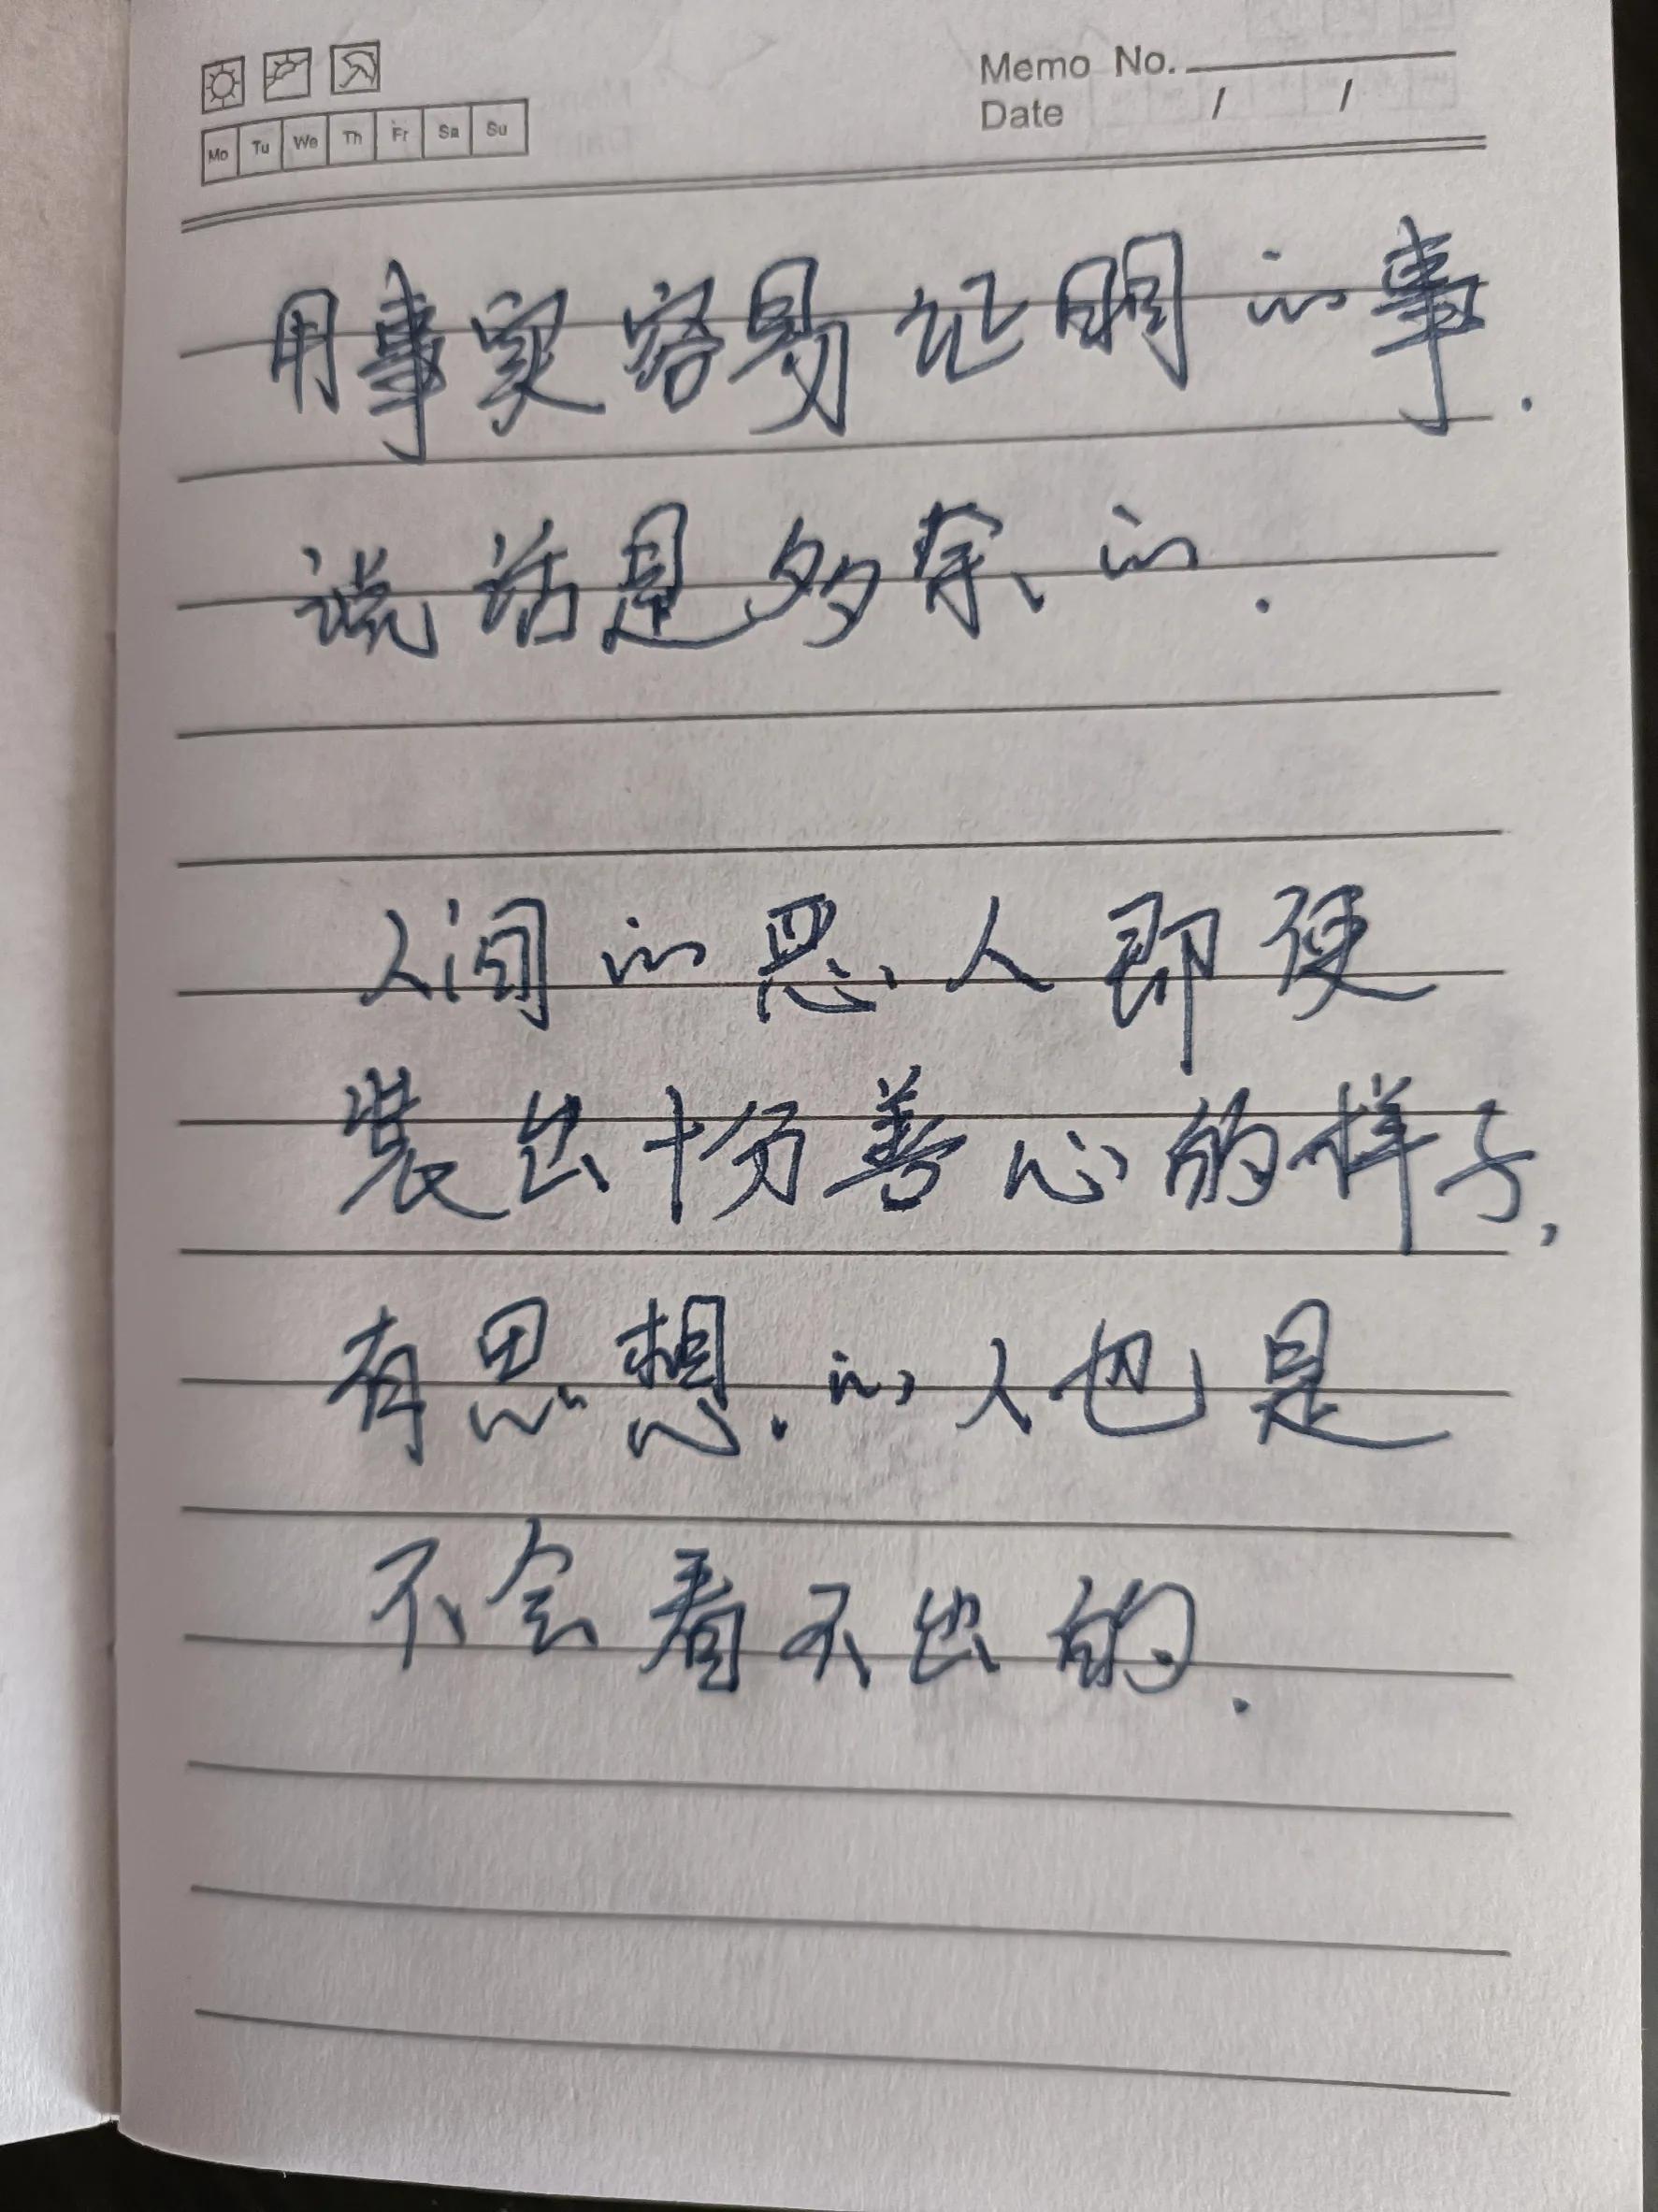 Memo No.
Date / /
Mo Tu We Th Fr Sa Su
用事实容易证明的事.
说话是多余的.
人间的恶人即便
装出十分善心的样子,
有思想的人也是
不会看不出的.